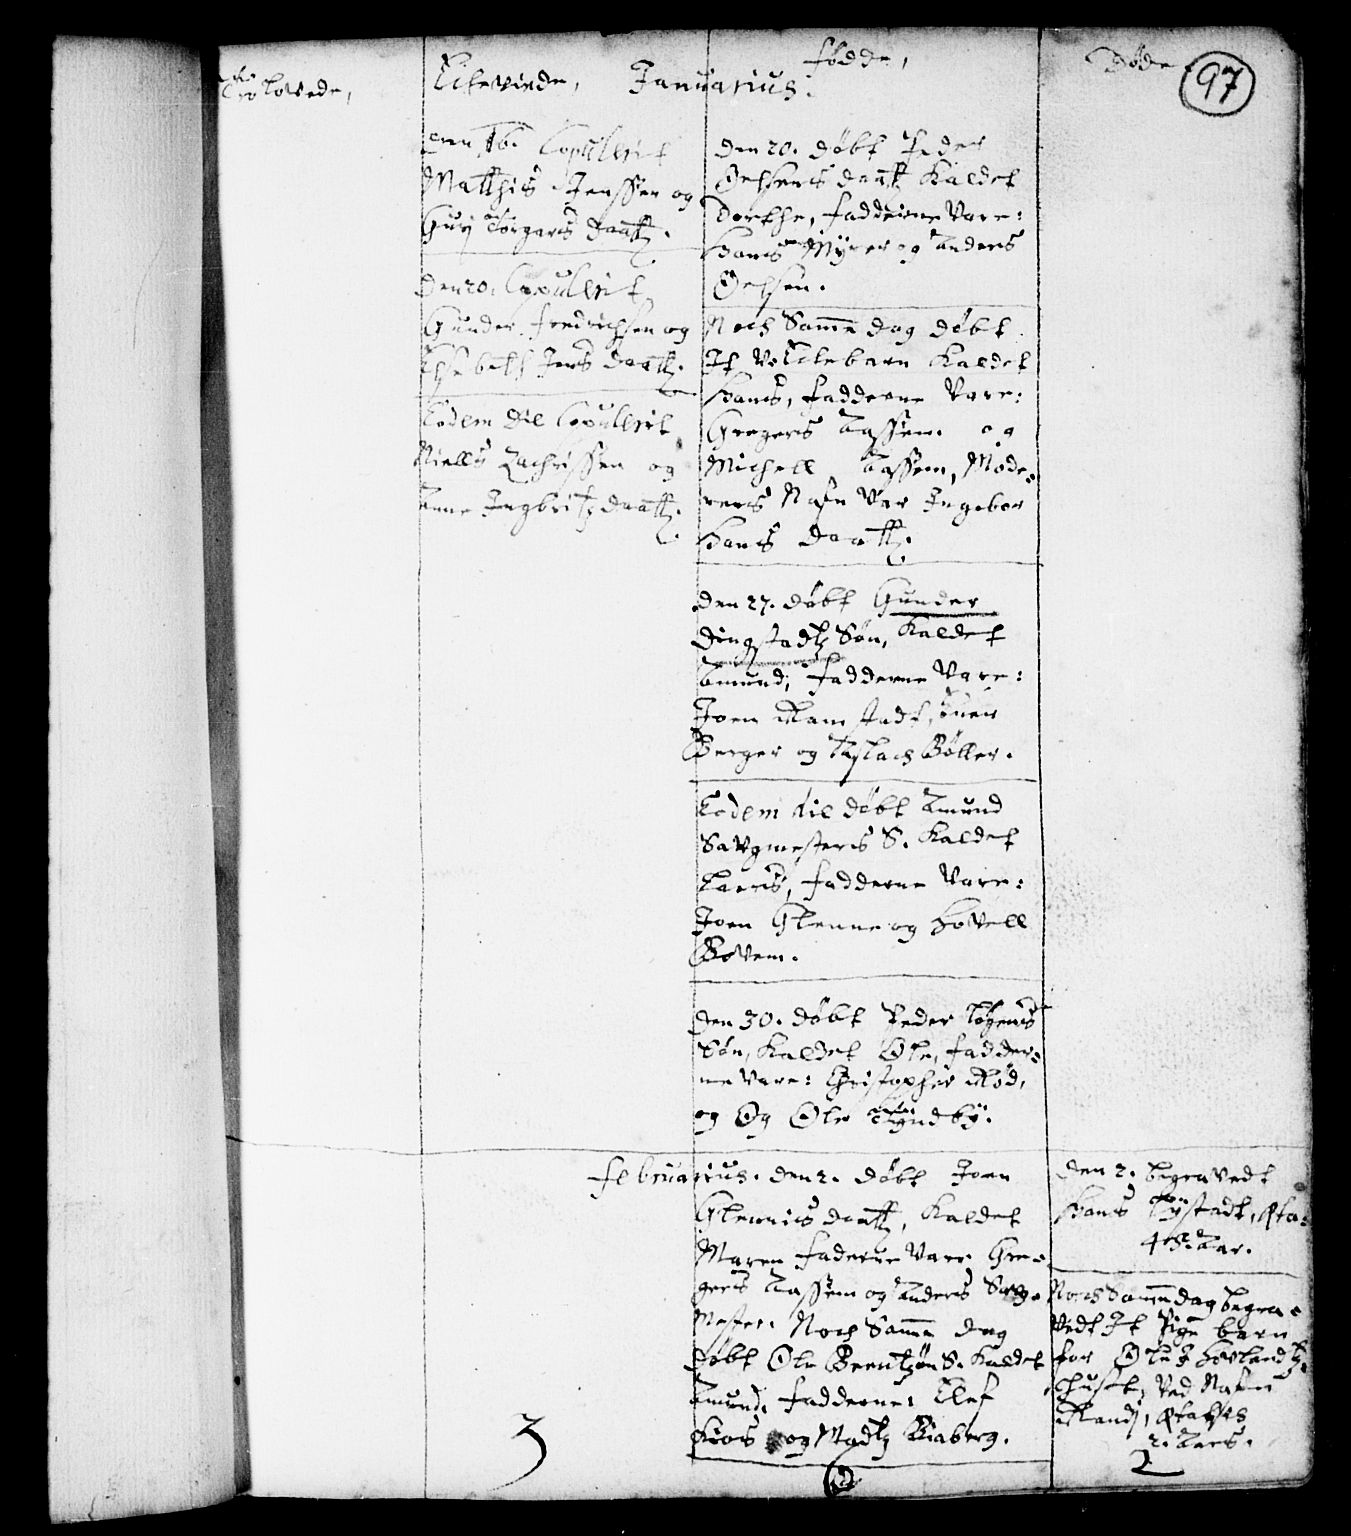 97
Trolovede,
Eitevirde, Januarius.
fødde,
Døde
Den 16. Copulerit
Matthis Jenssen og
Gurj Torgers daatt.
Den 20. Copulerit
Gunder fredrichsen og
Elsebeth Jens daatt.
Eodem die Copulerit
Niells Zachrissen og
Anne Ingbritz daatt.
3
Den 20. døbt Peder
Oelsens daatt Kaldet
Dorthe, faddeerne Vare:
Hans Myrer og Anders
Oelsen.
Noch Samme dag døbt
It Vechtebarn Kaldet
Hans, fadderne Vare:
Gregers Tassem. og
Michell Tassem, Mode-
rens Nafn Var Ingebor
Hans daatt.
Den 27. døbt Gunder
Dingstadtz Søn, Kaldet
Amund, fadderne Vare:
Joen Ramstadt, Iuer
Berger og Aslach Bøller.
Eodem die døbt Amund
Savgmesters S. Kaldet
Laers, fadderne Vare:
Joen Glenne og Hovell
Bovem.
Den 30. døbt Peder
Søn, Kaldet Ole, fadder-
ne Vare: Christopher Rød,
og Og Ole Tyndby.
februarius. den 2. døbt Joen
Glennis daatt, Kaldet
Maren faderne Vare Gre-
gers Tassem og Anders Savg-
Mester. Noch Samme dag
døbt Ole Brentzøn S. Kaldet
Amund. fadderne: Elef
Kios og Madtz Biaberg.
Den 2. begravedt
Hans Tystadt, Æta:
48. Aar.
Noch Samme dag begra-
vedt It Pige barn
for Ole Hovlandtz
Hust, Ved Nafn
Randj, Ætatis
2. Aars.
2